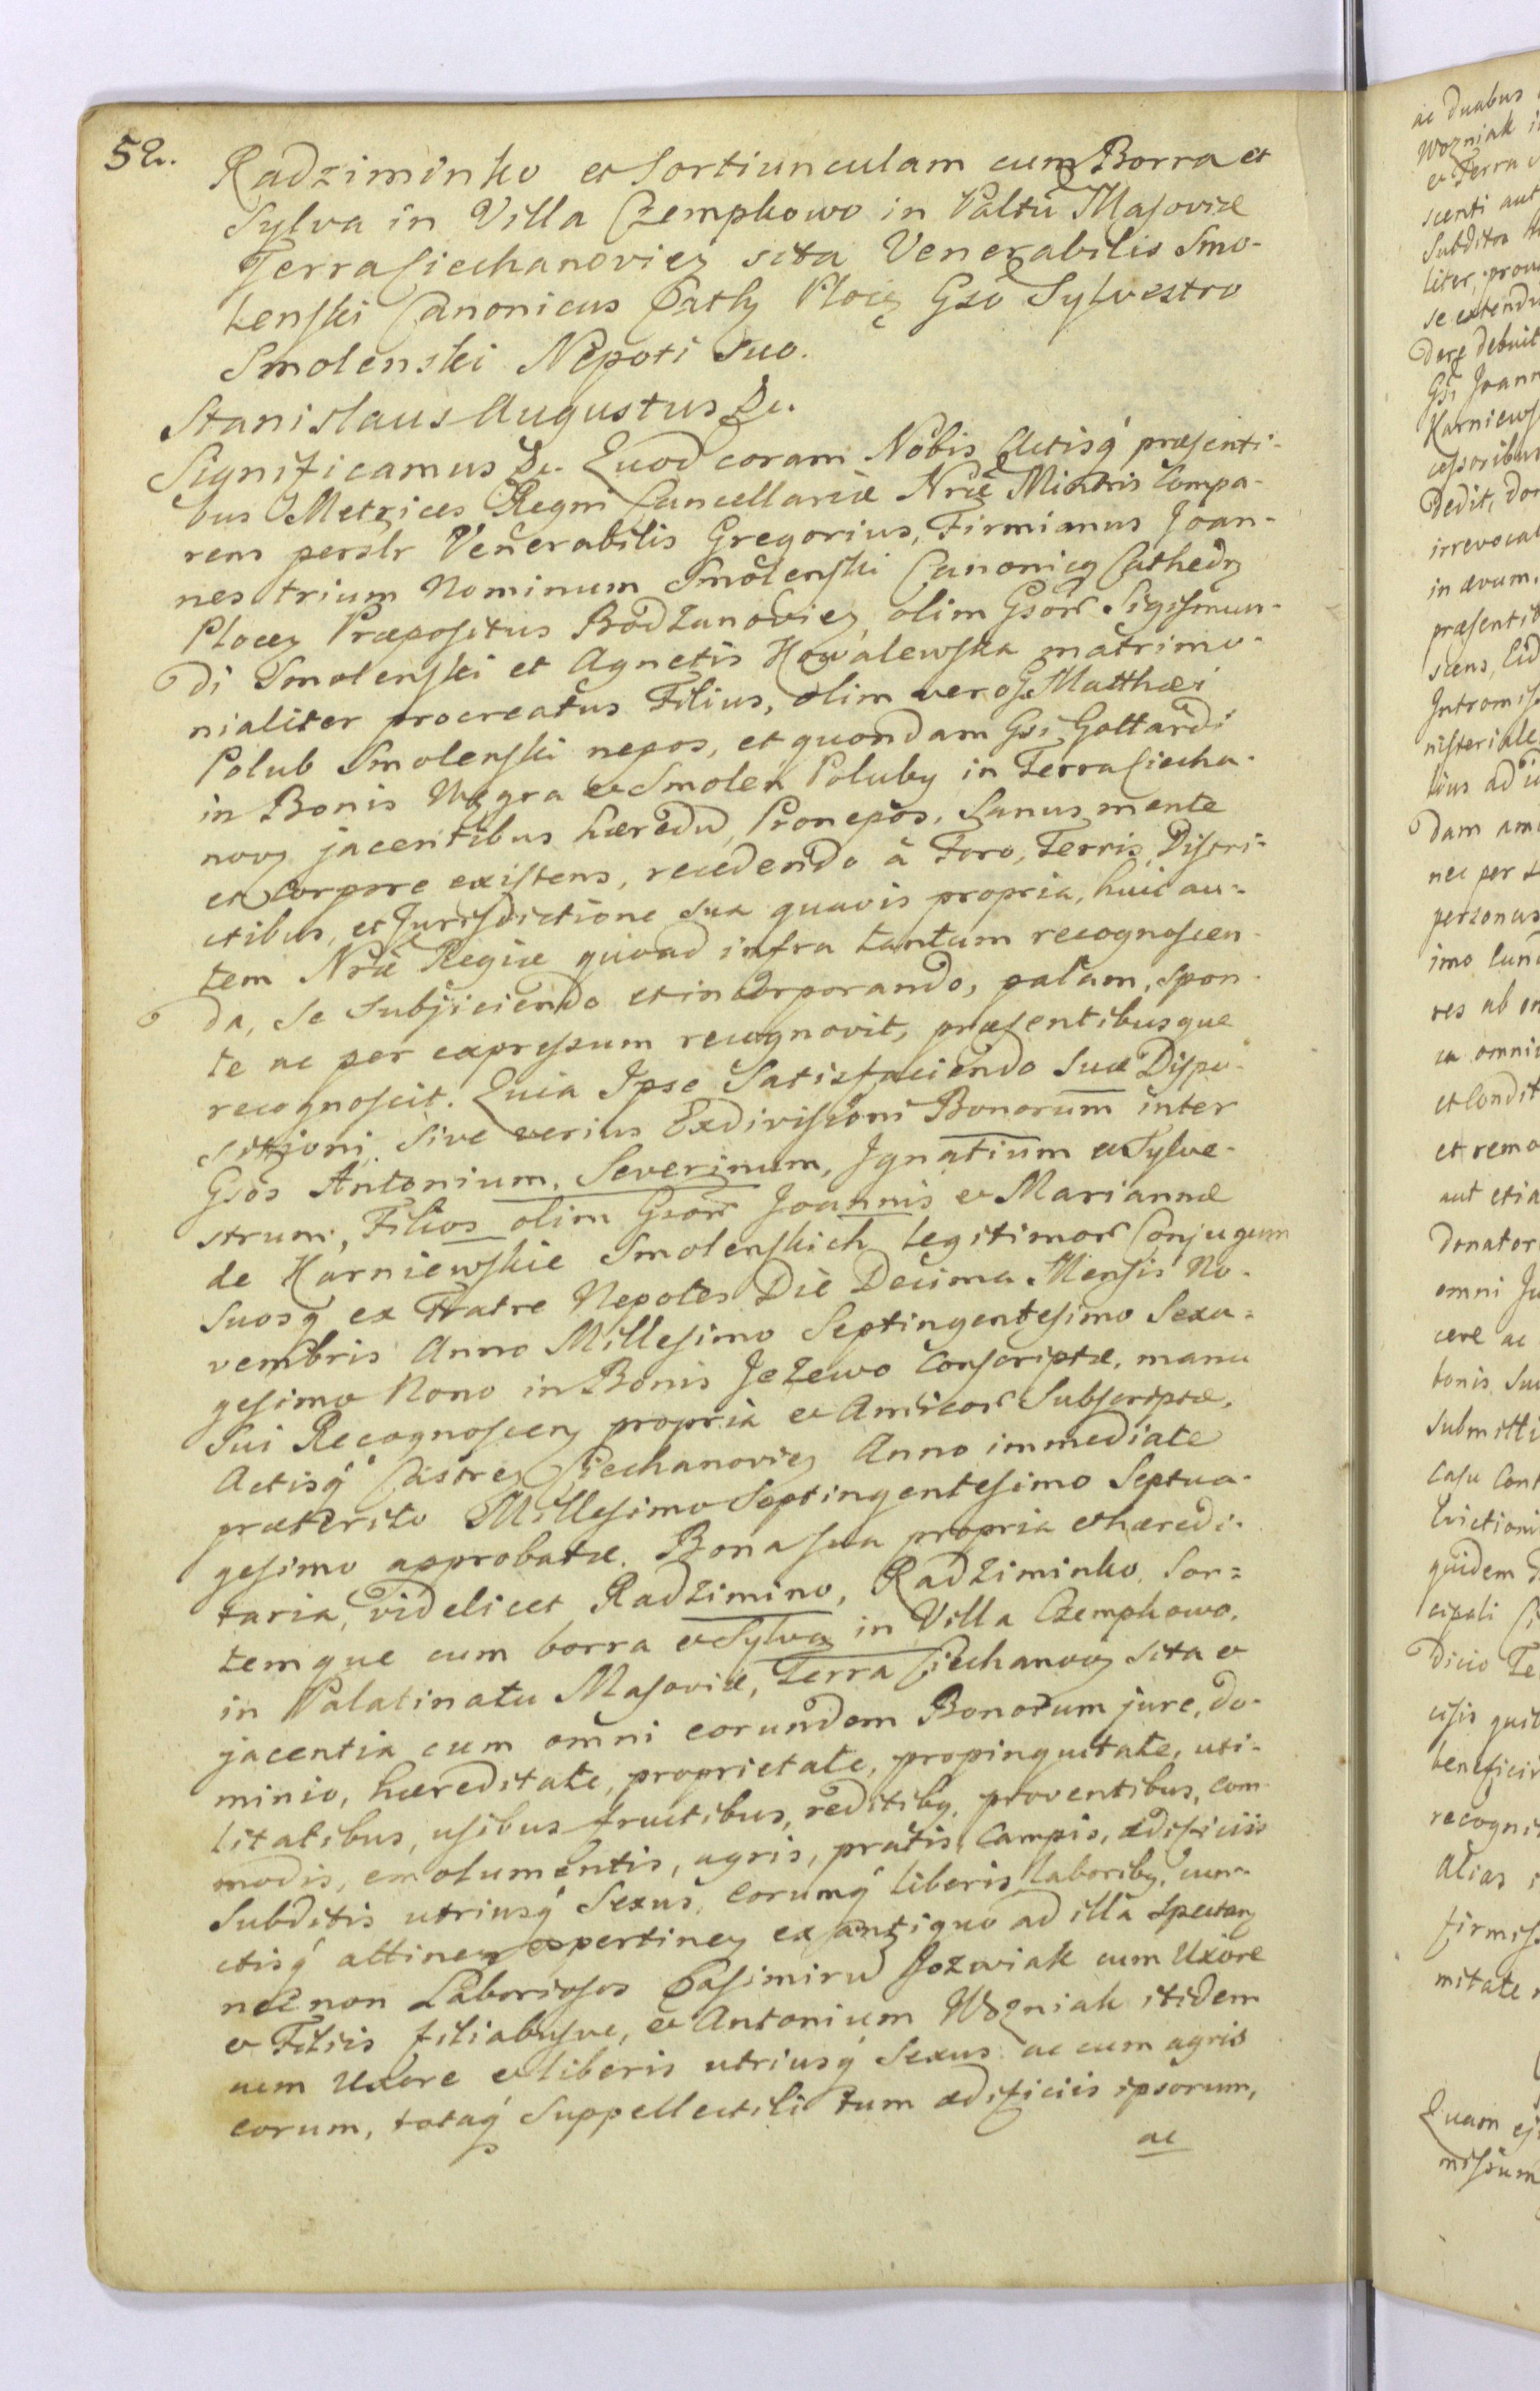 52.
Radziminko et Sortiunculam cum Borra et
Sylva in Villa Czempkowo in Paltũ Masoviæ
Terra Ciechanovien sita Venerabilis Smo-
lenski Canonicus Cathl Plocen Gso Sylvestro
Smolenski Nepoti Suo.
Stanislaus Augustus &c.
Significamus &c. Quod coram Nobis Actisq́ præsenti-
bus Metrices Regni Cancellariæ Nræ Minoris Compa-
rens perslr Venerabilis Gregorius, Firmianus Joan-
nes trium Nominum Smolenski Canonicq Cathedr
Plocen Præpositus Bodzanovien, olim Gsor Sigismun-
di Smolenski et Agnetis Kowalewska matrimo-
nialiter procreatus Filius, olim vero G Matthæi
Polub Smolenski nepos, et quondam Gsi Gottardi
in Bonis Wągra et Smoleń Poluby in Terra Ciecha-
novn jacentibus hæredũ, Pronepos, Sanus mente
et Corpore existens, recedendo à Foro, Terris, Distri-
ctibus, et Jurisdictione sua quavis propria, huic au-
tem Nræ Regiæ quoad infra tantum recognoscen-
da, se subjiciendo et incorporando, palam, spon-
te ac per expressum recognovit, præsentibusque
recognoscit. Quia Ipse Satisfaciendo Suæ Dispo-
sitioni, Sive verius Exdivisioni Bonorum inter
Gsos Antonium, Severinum, Ignatium et Sylve-
strum, Filios olim Gsor Joannis et Mariannæ
de Karniewskie Smolenskich legitimor Conjugum
Suosq́ ex Fratre Nepotes Die Decima Mensis No-
vembris Anno Millesimo Septingentesimo Sexa-
gesimo Nono in Bonis Jeżewo Conscriptæ, manu
Sui Recognoscen propria et Amicor Subscriptæ,
Actisq́ Castren Ciechanovien Anno immediate
præterito Millesimo Septingentesimo Septua-
gesimo approbatæ. Bona sua propria et hæredi-
taria, videlicet Radzimino, Radziminko, Sor-
temque cum borra et Sylva in Villa Czempkowo,
in Palatinatu Masoviæ, Terra Ciechanovn sita et
jacentia cum omni eorundem Bonorum jure, do-
minio, hæreditate, proprietate, propinquitate, uti-
litatibus, usibus fructibus, reditibq, proventibus, com-
modis, emolumentis, agris, pratis, Campis, ædificiis
Subditis utriusq́ Sexus, eorumq́ liberis, laboribq, cun-
ctisq́ attinen et pertinen ex antiquo ad illa spectan
nec non Laboriosos Casimirũ Jozwiak cum Uxore
et Filiis filiabusve, et Antonium Wozniak itidem
cum Uxore et liberis utriusq́ Sexus ac cum agris
eorum, totaq́ Suppellectili tum ædificiis ipsorum,
ac
ac duabus
Wozniak
et Terra
scenti aut
Subditor
liter, prout
se extendi
dere debuit
Gsi Joann
Karniews
cessoribus
dedit, do
irrevocab
in ævum,
præsentib
scens,
Intromis
nisteriale
dam ami
nec per
personas
imo
res ab
ca omni
et Condit
et remo
aut etia
donator
omni Ju
cere ac
tonis Su
Submitti
Casu Cont
Evictioni
quidem
cipali
dicio Te
cisis
beneficii
recognit
alias
firmis
mitate
Quam
missum